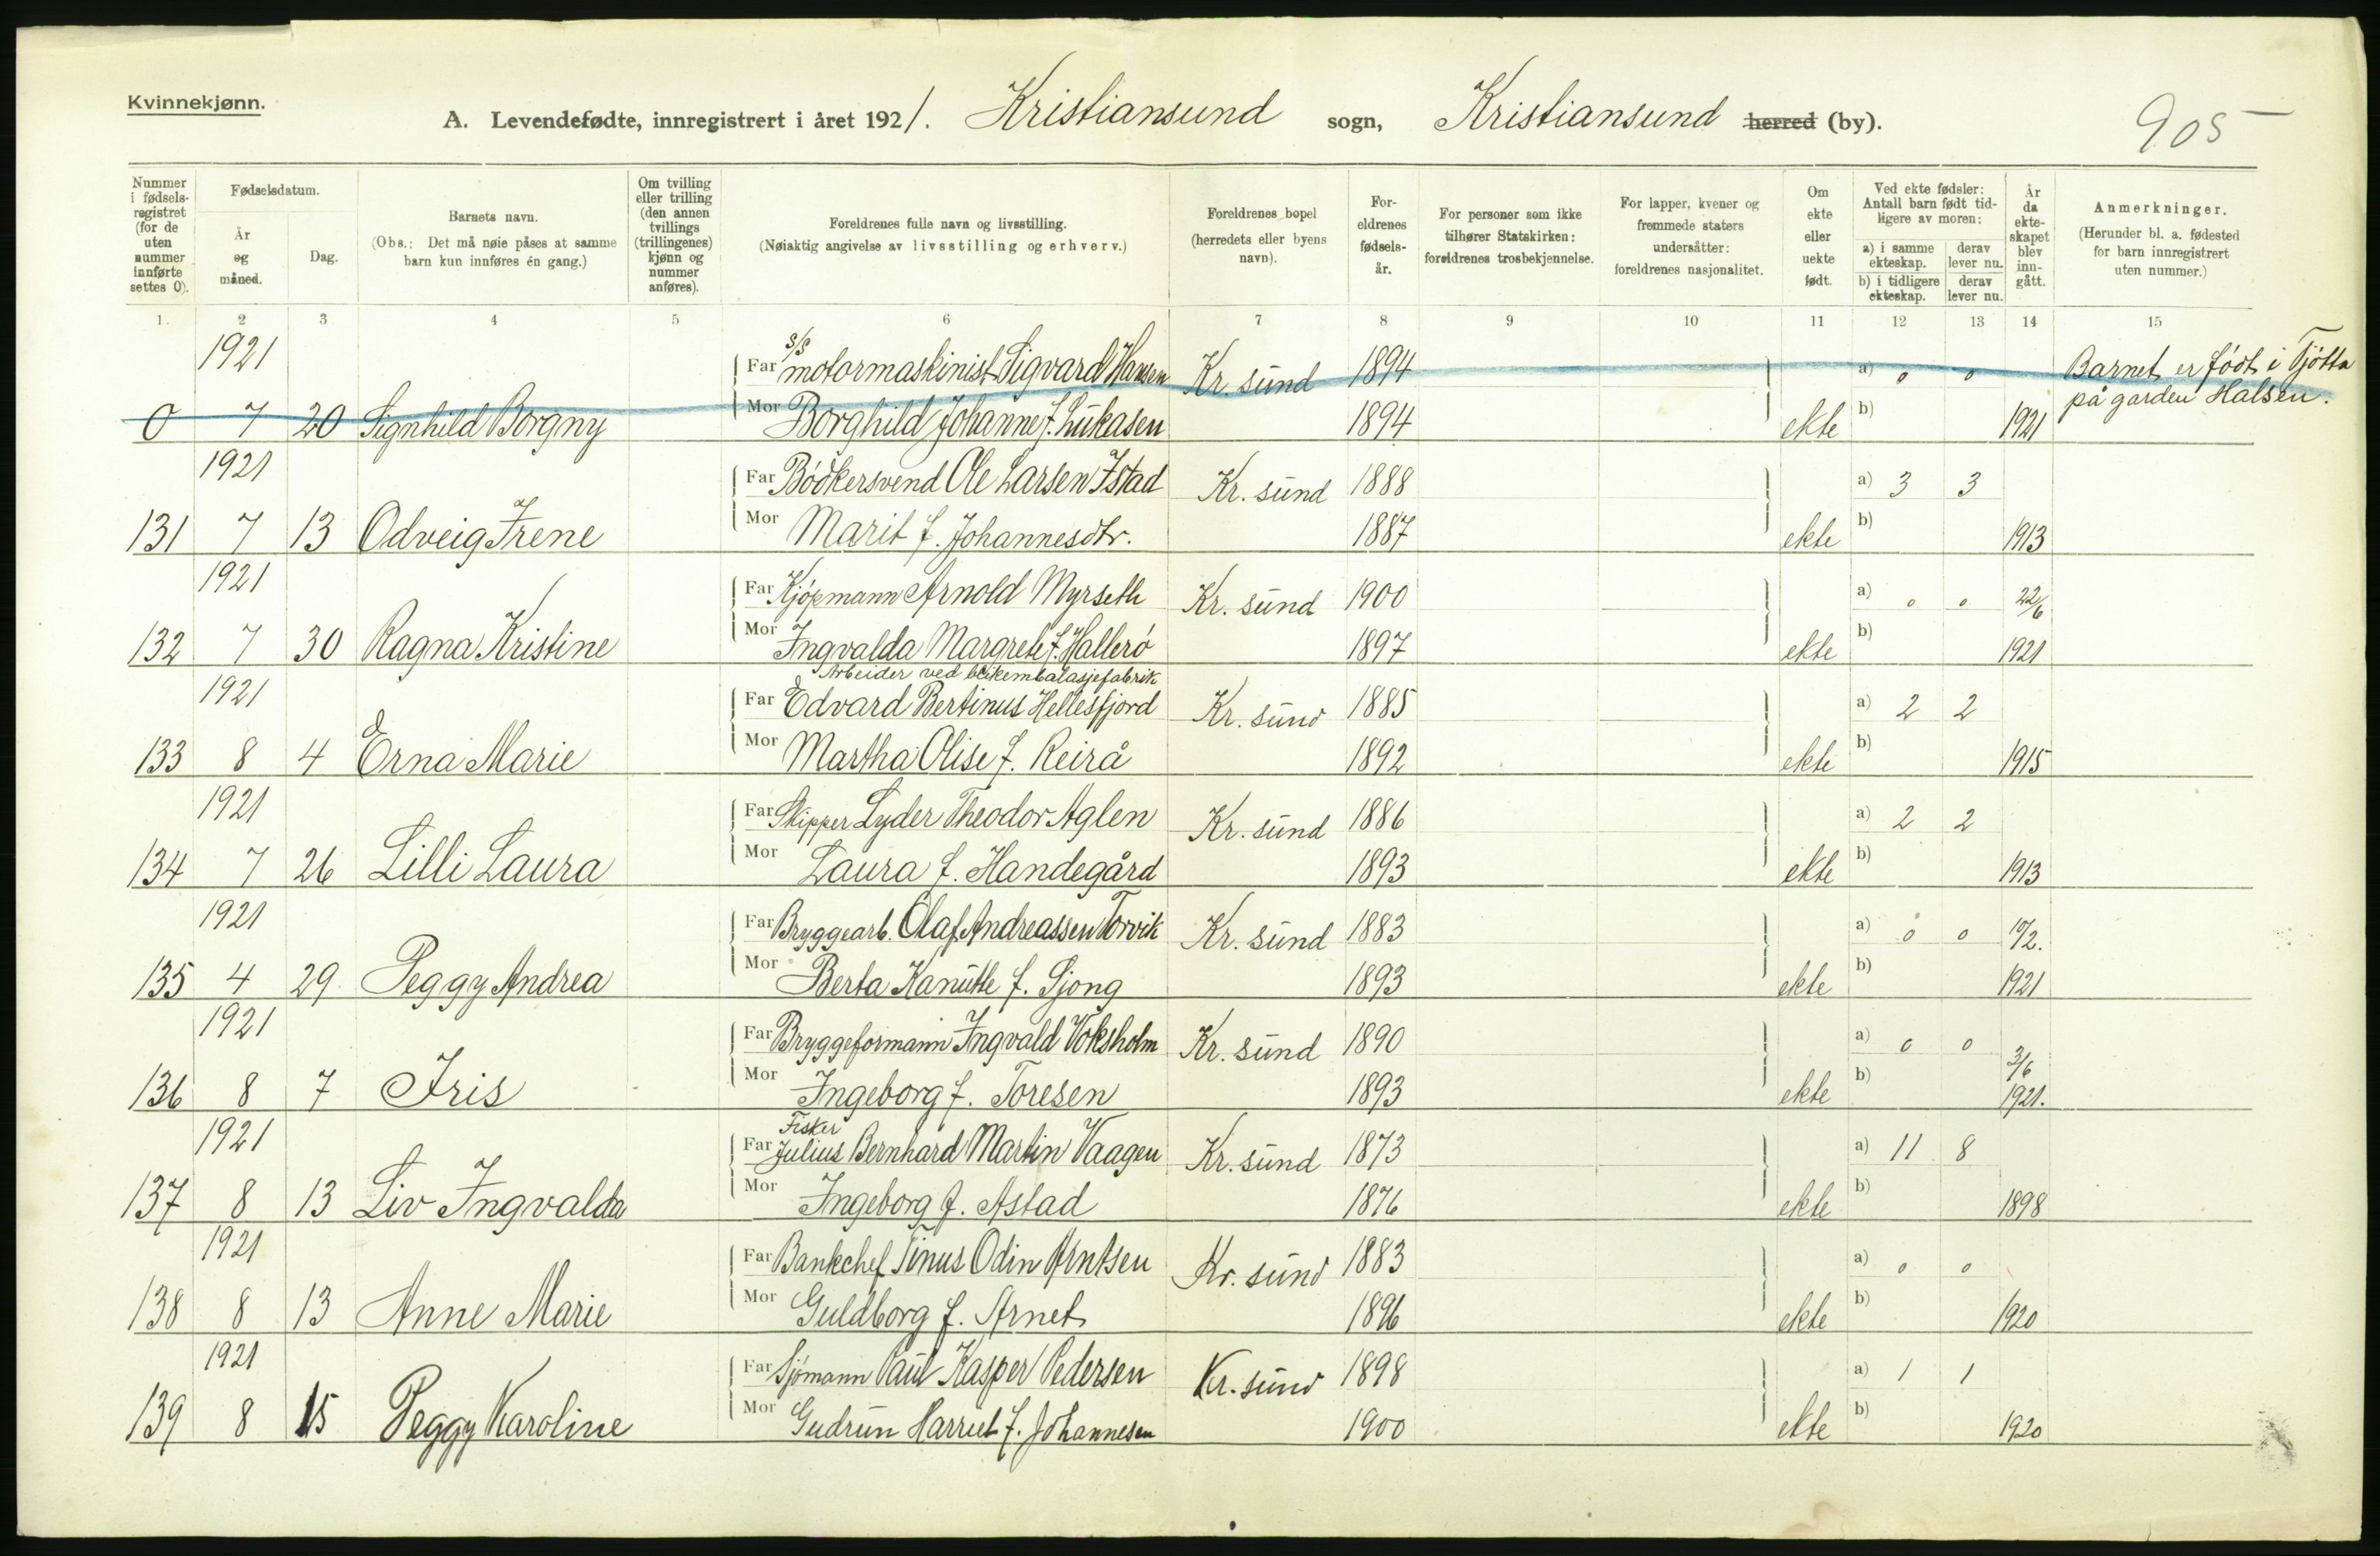 Kvinnekjønn.
A. Levendefødte, innregistrert i året 1921. Kristiansund sogn, Kristiansund herred (by).
905
Nummer i fødsels-registret (for de uten nummer innførte settes 0).
Fødselsdatum.
År og måned.
Dag.
Barnets navn.
(Obs.: Det må nøie påses at samme barn kun innføres én gang.)
Om tvilling eller trilling (den annen tvillings (trillingenes) kjønn og nummer anføres).
Foreldrenes fulle navn og livsstilling.
(Nøiaktig angivelse av livsstilling og erhverv.)
Foreldrenes bopel (herredets eller byens navn).
For-eldrenes fødsels-år.
For personer som ikke tilhører Statskirken: foreldrenes trosbekjennelse.
For lapper, kvener og fremmede staters undersåtter: foreldrenes nasjonalitet.
Om ekte eller uekte født.
Ved ekte fødsler: Antall barn født tid-ligere av moren:
a) i samme ekteskap.
derav lever nu.
b) i tidligere ekteskap.
derav lever nu.
År da ekte-skapet blev inn-gått.
Anmerkninger.
(Herunder bl. a. fødested for barn innregistrert uten nummer.)
1. 2 3 4 5 6 7 8 9 10 11 12 13 14 15
1921 Far s/s motormaskinist Sigvard Hansen Kr. sund 1894 a) 0 0 Barnet er født i Tjøtta
på garden Halsen.
0 7 20 Signhild Borgny Mor Borghild Johanne f. Lukasen 1894 ekte b) 1921
1921 Far Bødkersvend Ole Larsen Istad Kr. sund 1888 a) 3 3
131 7 13 Odveig Irene Mor Marit f. Johannesdtr. 1887 ekte b) 1913
1921 Far Kjøpmann Arnold Myrseth Kr. sund 1900 a) 0 0 22/6
132 7 30 Ragna Kristine Mor Ingvalda Margrete f. Hallerø 1897 ekte b) 1921
Arbeider ved blikembalasjefabrik
1921 Far Edvard Bertinus Hellesfjord Kr. sund 1885 a) 2 2
133 8 4 Erna Marie Mor Martha Olise f. Reirå 1892 ekte b) 1915
1921 Far Skipper Lyder Theodor Aglen Kr. sund 1886 a) 2 2
134 7 26 Lilli Laura Mor Laura f. Handegård 1893 ekte b) 1913
1921 Far Bryggearb. Olaf Andreassen Torvik Kr. sund 1883 a) 0 0 19/2.
135 4 29 Peggy Andrea Mor Berta Kanutte f. Sjong 1893 ekte b) 1921
1921 Far Bryggeformann Ingvald Voksholm Kr. sund 1890 a) 0 0 3/6
136 8 7 Iris Mor Ingeborg f. Toresen 1893 ekte b) 1921.
Fisker
1921 Far Julius Bernhard Martin Vaagen Kr. sund 1873 a) 11 8
137 8 13 Liv Ingvalda Mor Ingeborg f. Astad 1876 ekte b) 1898
1921 Far Bankchef Tinus Odin Arntsen Kr. sund 1883 a) 0 0
138 8 13 Anne Marie Mor Guldborg f. Arnet 1896 ekte b) 1920
1921 Far Sjømann Paul Kasper Pedersen Kr. sund 1898 a) 1 1
139 8 15 Peggy Karoline Mor Gudrun Harriet f. Johannesen 1900 ekte b) 1920